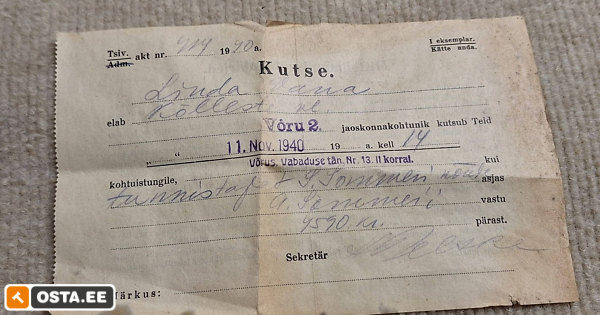 Tsiv. akt nr. 714 1940 a. I eksemplar.
Adm. Kätte anda.
Kutse.
Linda
elab Kõlleste vl
Võru 2. jaoskonnakohtunik kutsub Teid
„ “ 11. Nov. 1940 19 a. kell 14
Võrus, Vabaduse tän. Nr. 13. II korral. kui
kohtuistungile,
tunnistaja Sommeri asjas
A. Sommeri vastu
4590 kr. pärast.
Sekretär
Märkus:
OSTA.EE